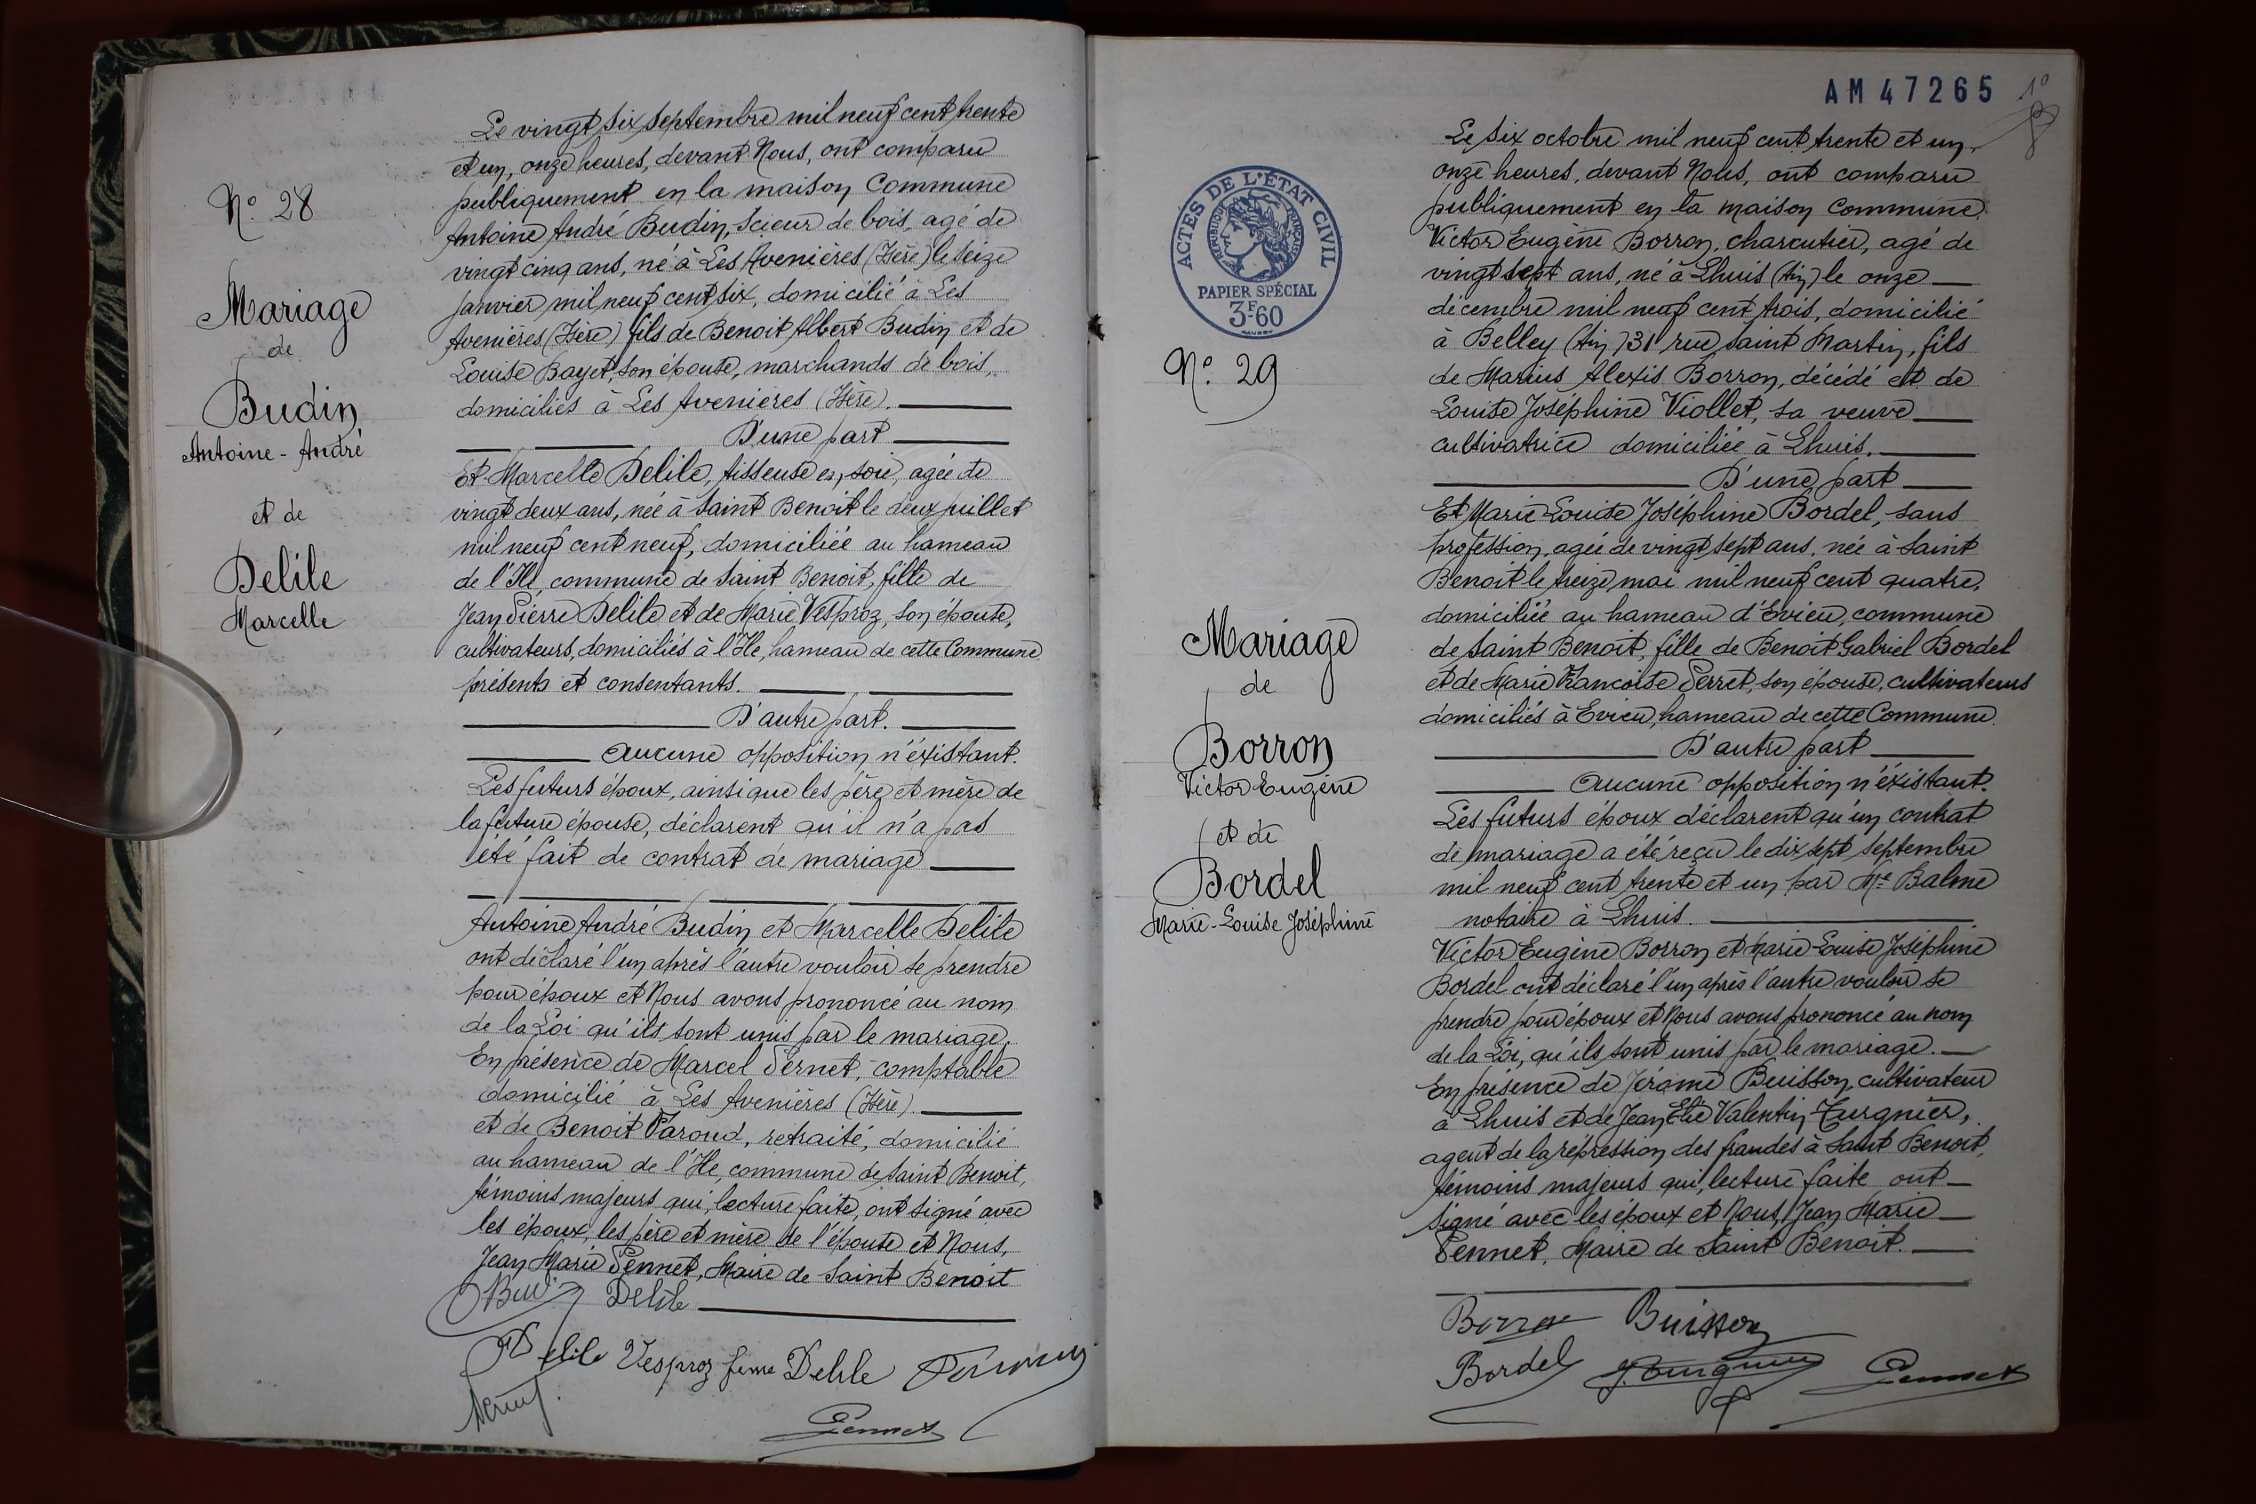 N° 28
Mariage
de
Budin
Antoine-André
et de
Delile
Marcelle
Le vingt six septembre mil neuf cent trente
et un, onze heures, devant Nous, ont comparu
publiquement en la maison Commune
Antoine André Budin, scieur de bois, agé de
vingt cinq ans, né à Les Avenières (Isère) le seize
janvier mil neuf cent six, domicilié à Les
Avenières (Isère) fils de Benoit Albert Budin et de
Louise Bayet, son épouse, marchands de bois,
domiciliés à Les Avenières (Isère).
D'une part
Et Marcelle Delile, tisseuse en soie, agée de
vingt deux ans, née à Saint Benoit le deux juillet
mil neuf cent neuf, domiciliée au hameau
de l'Ile, commune de Saint Benoit, fille de
Jean Pierre Delile et de Marie Vesproz, son épouse,
cultivateurs, domiciliés à l'Ile, hameau de cette Commune
présents et consentants.
D'autre part.
aucune opposition n'éxistant.
Les futurs époux, ainsi que les père et mère de
la future épouse, déclarent qu'il n'a pas
été fait de contrat de mariage
Antoine André Budin et Marcelle Delile
ont déclaré l'un après l'autre vouloir se prendre
pour époux et Nous avons prononcé au nom
de la Loi qu'ils sont unis par le mariage.
En présence de Marcel Pernet, comptable
domicilié à Les Avenières (Isère).
et de Benoit Paroud, retraité, domicilié
au hameau de l'Ile, commune de Saint Benoit,
témoins majeurs qui, lecture faite, ont signé avec
les époux, les père et mère de l'épouse et Nous,
Jean Marie Pennet, Maire de Saint Benoit
Delile
Delile Vesproz feme Delile
Pennet
AM 47265
ACTES DE L'ÉTAT CIVIL
RÉPUBLIQUE FRANÇAISE
PAPIER SPÉCIAL
3F60
N° 29
Mariage
de
Borron
Victor Eugène
et de
Bordel
Marie-Louise Joséphine
Le six octobre mil neuf cent trente et un,
onze heures, devant Nous, ont comparu
publiquement en la maison commune
Victor Eugène Borron, charcutier, agé de
vingt sept ans, né à Lhuis (Ain) le onze
décembre mil neuf cent trois, domicilié
à Belley (Ain) 31 rue Saint Martin, fils
de Marius Alexis Borron, décédé et de
Louise Joséphine Viollet, sa veuve
cultivatrice domiciliée à Lhuis.
D'une part
Et Marie-Louise Joséphine Bordel, sans
profession, agée de vingt sept ans, née à Saint
Benoit le treize mai mil neuf cent quatre,
domiciliée au hameau d'Evieu, commune
de Saint Benoit, fille de Benoit Gabriel Bordel
et de Marie Françoise Perret, son épouse, cultivateurs
domiciliés à Evieu, hameau de cette Commune.
D'autre part
aucune opposition n'éxistant.
Les futurs époux déclarent qu'un contrat
de mariage a été reçu le dix sept septembre
mil neuf cent trente et un par Me Balme
notaire à Lhuis.
Victor Eugène Borron et Marie Louise Joséphine
Bordel ont déclaré l'un après l'autre vouloir se
prendre pour époux et Nous avons prononcé au nom
de la Loi, qu'ils sont unis par le mariage.
En présence de Jérome Buisson, cultivateur
à Lhuis et de Jean Elie Valentin Turgnier,
agent de la répression des fraudes à Saint Benoit,
témoins majeurs qui, lecture faite ont
signé avec les époux et Nous, Jean Marie
Pennet, Maire de Saint Benoit.
Borron Buisson
Bordel Pennet